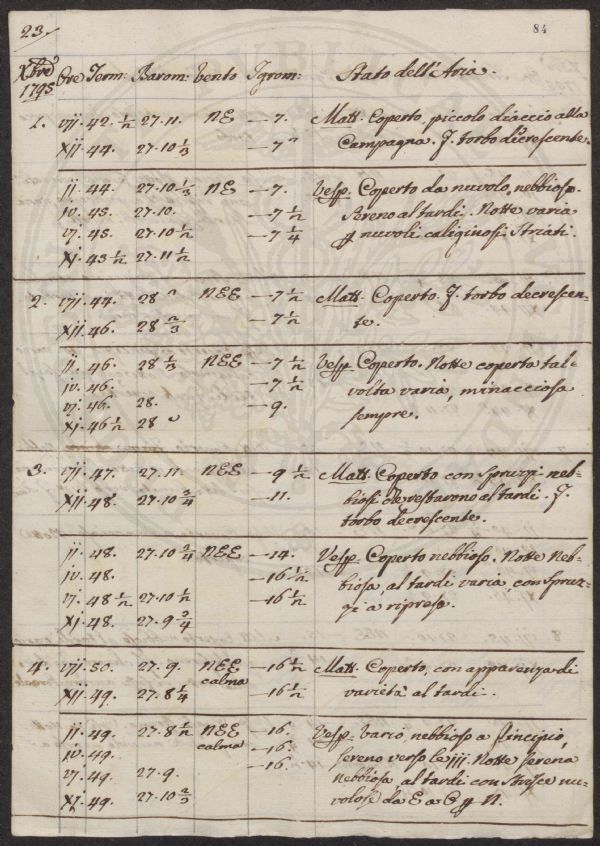 23.
84
Xbre
1795
Ore Term: Barom: Vento Igrom: Stato dell'Aria.
1. vij. 42. ½ 27. 11. NE —7. Matt. Coperto, piccolo diaccio alla
xij. 44. 27. 10 ⅓ —7 Campagna. F. torbo decrescente.
ij. 44. 27. 10 ⅓ NE —7. Vesp. Coperto da nuvolo, nebbioso.
iv. 45. 27. 10. —7 ½ Sereno al tardi. Notte varia
vj. 45. 27. 10 ½ —7 ¼ nuvoli caliginosi Striati.
xj. 43 ½ 27. 11 ½
2. vij. 44. 28 NEE —7 ½ Matt. Coperto. F. torbo decrescen-
xij. 46. 28 ⅔ —7 ½ te.
ij. 46. 28 ⅓ NEE —7 ½ Vesp. Coperto. Notte coperta tal-
iv. 46. —7 ½ volta varia, minacciosa
vj. 46. 28. —9. sempre.
xj. 46 ½ 28
3. vij. 47. 27. 11. NEE —9 ½ Matt. Coperto con Spruzzi neb-
xij. 48. 27. 10 ¾ —11. biosi che restarono al tardi. F.
torbo decrescente.
ij. 48. 27. 10 ¾ NEE —14. Vesp. Coperto nebbioso. Notte Neb-
iv. 48. —16 ½ biosa, al tardi varia, con Spruz-
vj. 48 ½ 27. 10 ½ —16 ½ zi a riprese.
xj. 48. 27. 9 ¾
4. vij. 50. 27. 9. NEE —16 ½ Matt. Coperto, con apparenza di
calma
xij. 49. 27. 8 ¼ —16 ½ varietà al tardi.
ij. 49. 27. 8 ½ NEE —16. Vesp. Vario, nebbioso a principio,
calma
iv. 49. —16. sereno verso le iij. Notte serena
vj. 49. 27. 9. —16. nebbiosa al tardi con Strisce nu-
xj. 49. 27. 10 ⅔ volose da E a O N.